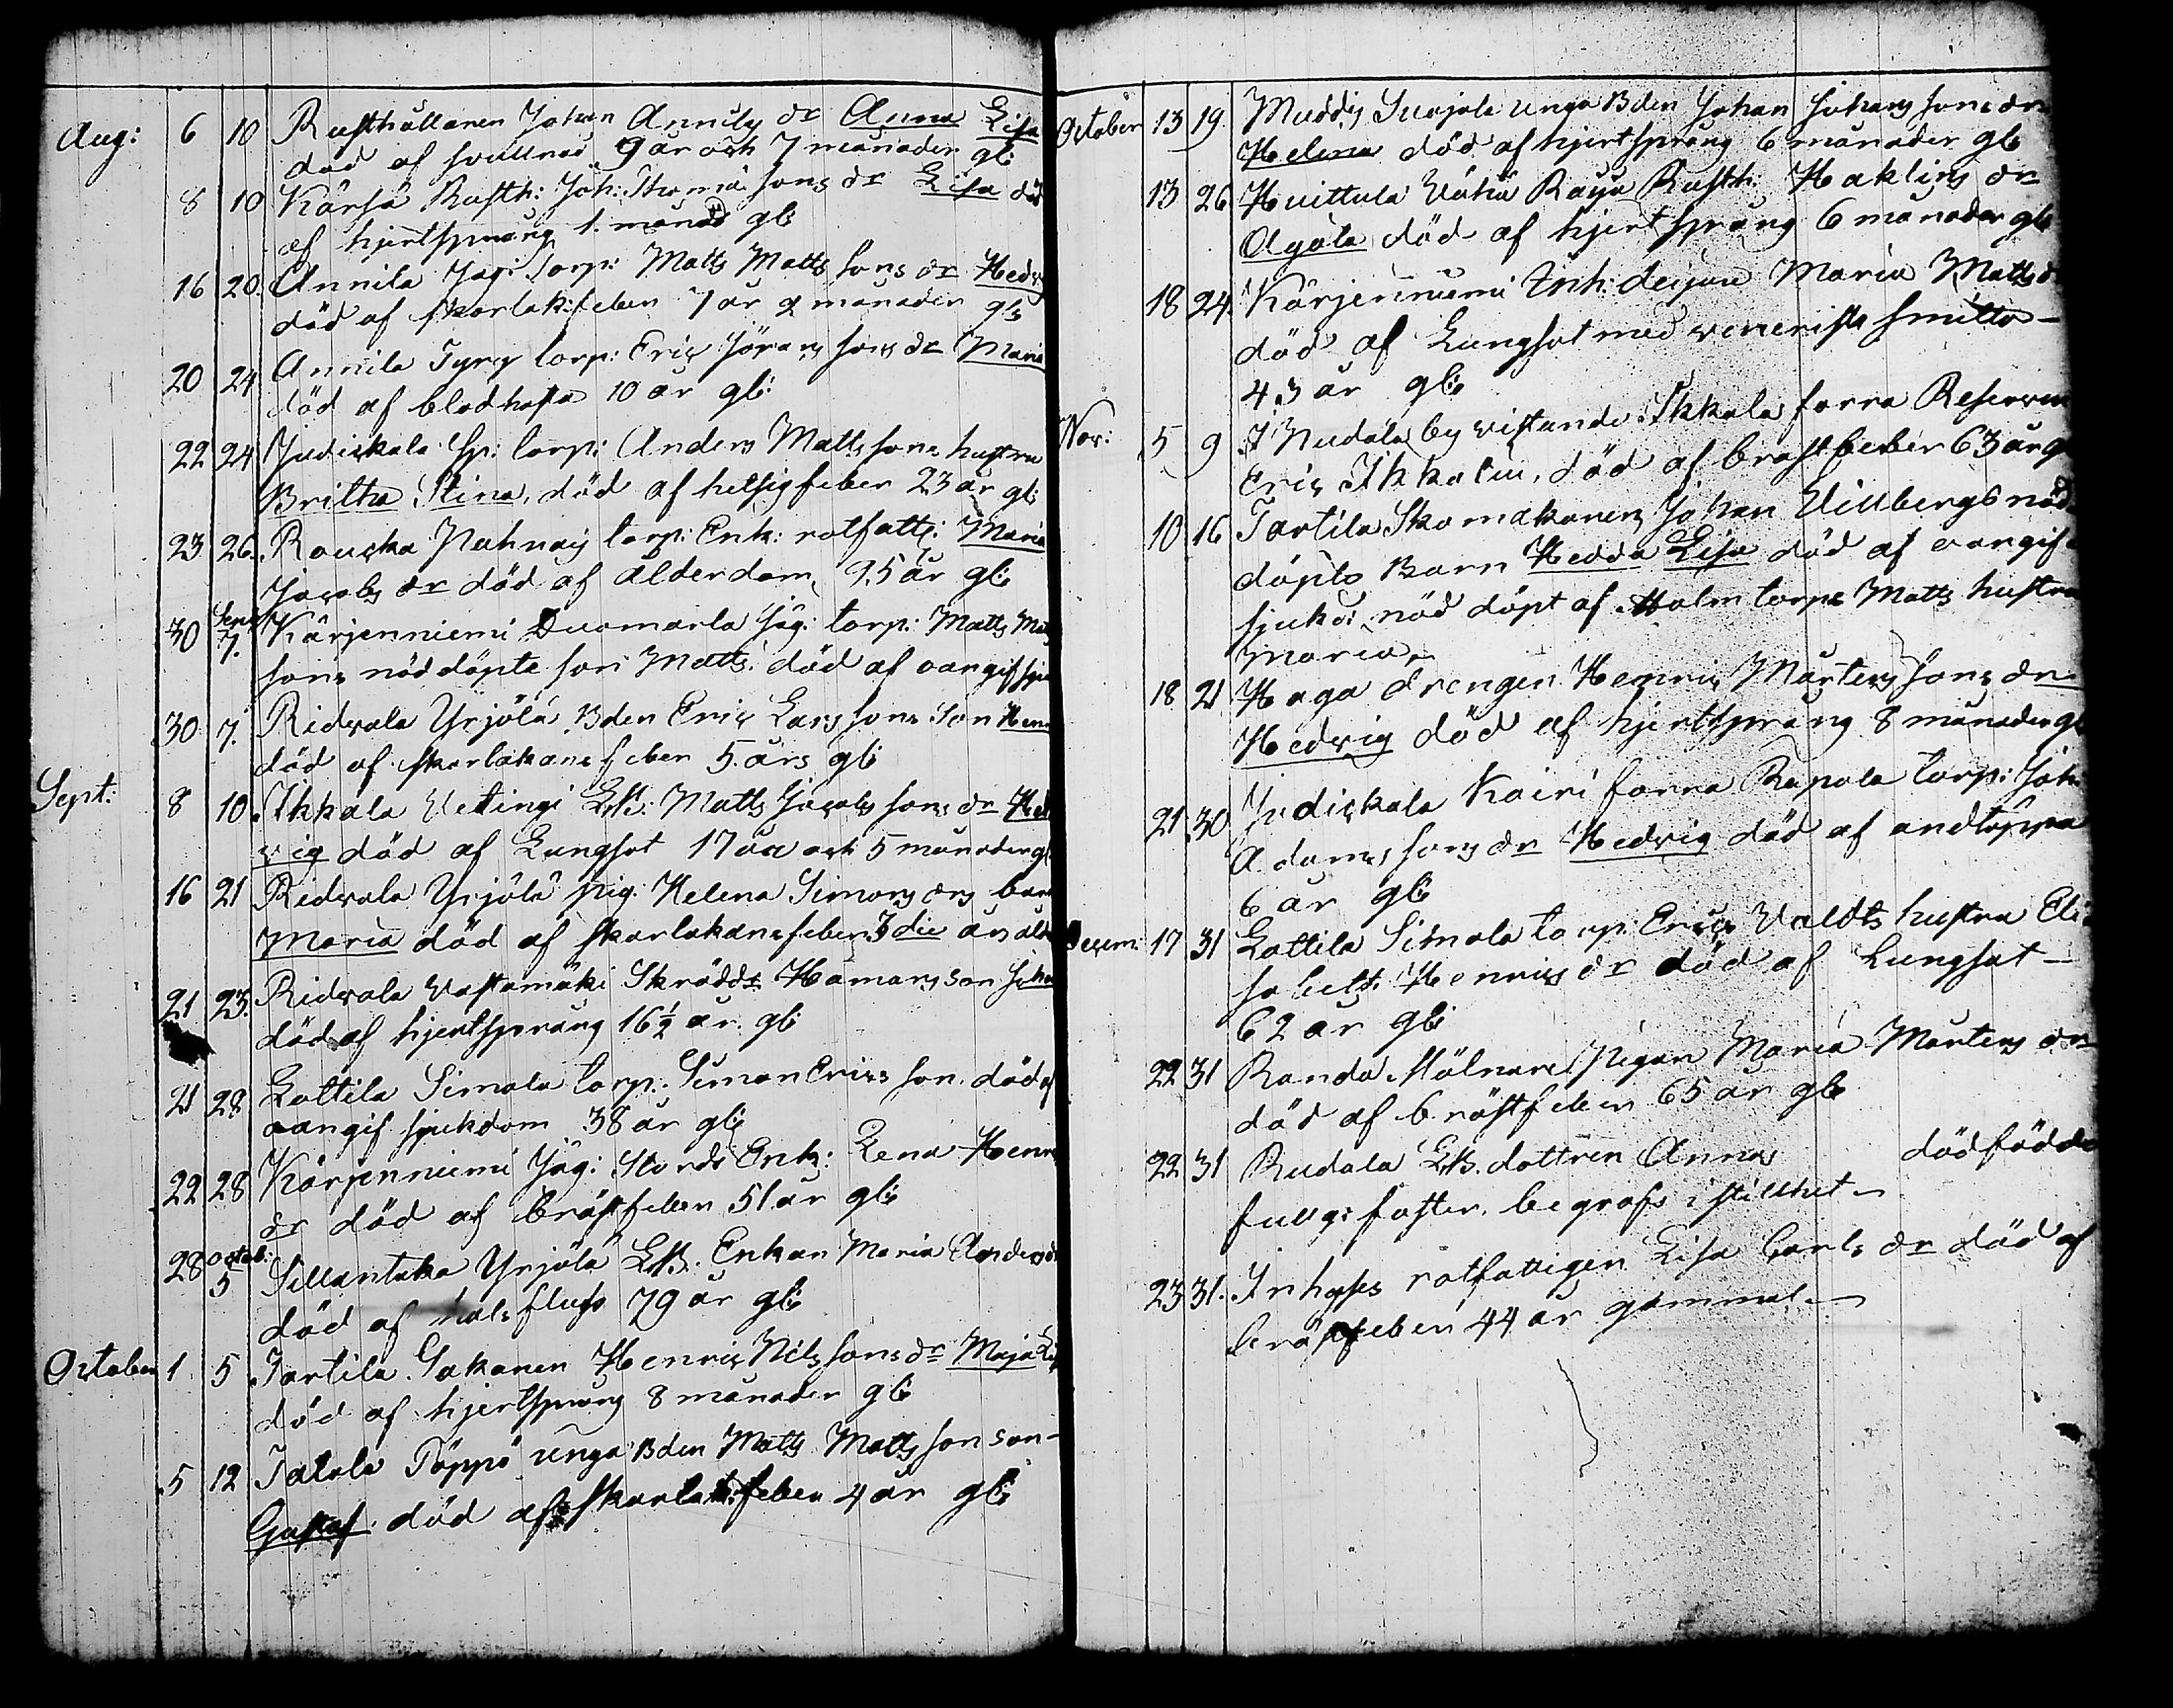 Aug: 6 10 Rusthållaren Johan Annilas dr Anna Lisa
död af svullnad 9 år och 7 månader gl:
8 10 Kärsä Rusth: Joh: Thomæ sons dr Lisa död
af hjertsprång 1. månad gl:
16 20. Annila Jägi torp: Matts Matts sons dr Hedvig
död af skarlak: feber 7 år 2 månader gl:
20 24 Annila Tyry torp: Eric Jörans sons dr Maria
död af blodhosta 10 år gl:
22 24 Judickala Sp: torp: Anders Matts sons hustru
Britha Stina, död af hetsig feber 23 år gl:
23 26. Rouska Nahnais torp: Enk: rotfatt: Maria
Jacobs dr död af ålderdom 95 år gl:
30 Sept: 7. Kärjenniemi Duomarla Jäg: torp: Matts Matts
sons nöddöpte son Matts död af oangif sju
30 7. Ridvala Yrjölä Bden Eric Lars sons Son Hen
död af skarlakans feber 5. års gl:
Sept: 8 10. Ikkala Uetingi LB: Matts Jacobs sons dr Hed
vig död af Lungsot 17 år och 5 månader gl
16 21 Ridvala Yrjölä pig: Helena Simons drs barn
Maria död af skarlakans feber 3die års ålder
21 23. Ridvala Vastamäki Skrädd: Hamans son Joha
död af hjertsprång 16½ år. gl:
21 28 Lottila Simola torp: Simon Erics son. död af
oangif sjukdom 38 år gl:
22 28 Kärjenniemi Jäg: Stords Enk: Lena Henr
dr död af bröstfeber 51 år gl:
28 Octob: 5 Sillantaka Yrjölä LB. Enkan Maria Anders dr
död af halsfluss 79 år gl:
October 1. 5 Tartila Sakaren Henric Nils sons dr Maja Lis
död af hjertsprång 8 månader gl:
5 12 Talala Töppö unga Bden Matts Matts son son
Gustaf. död af skarlak: feber 4 år gl:
October 13 19. Muddis Suojala unga Bden Johan Johans sons dr
Helena död af hjertsprång 6 månader gl:
13 26 Huittula Vähä Raya Rusth: Haklins dr
Agata död af hjertsprång 6 månader gl:
18 24. Kärjenniemi Inh: Maria Matts d
död af Lungsot med veneriska smitta
43 år gl:
Nov: 5 9 I Nudala by vistande Ikkala förra Reserven
Eric Ikkalin, död af bröstfeber 63 år g
10 16 Tartila Skomakaren Johan Villbergs nöd
döpte Barn Hedda Lisa död af oangif
sjukd: nöd döpt af Malm torps Matts hustru
Maria
18 21 Haga drengen Henric Mårtens sons dr
Hedvig död af hjertsprång 8 månader gl
21. 30. Judickala Kairi förra Rapola torp: Joh:
Adams sons dr Hedvig död af andtäppa
6 år gl:
Decem: 17 31 Lottila Simola torp: Erics Valdts hustru Eli
sabeth: Henrics dr död af Lungsot
62 år gl:
22 31 Randa Mölnare Pigan Maria Mårtens dr
död af bröstfeber 65 år gl:
22 31 Rudala LB. dottren Annas dödfödda
fullg: foster. begrofs i stillhet
23 31. Inhyses rotfattigen Lisa Carls dr död af
bröstfeber 44 år gammal